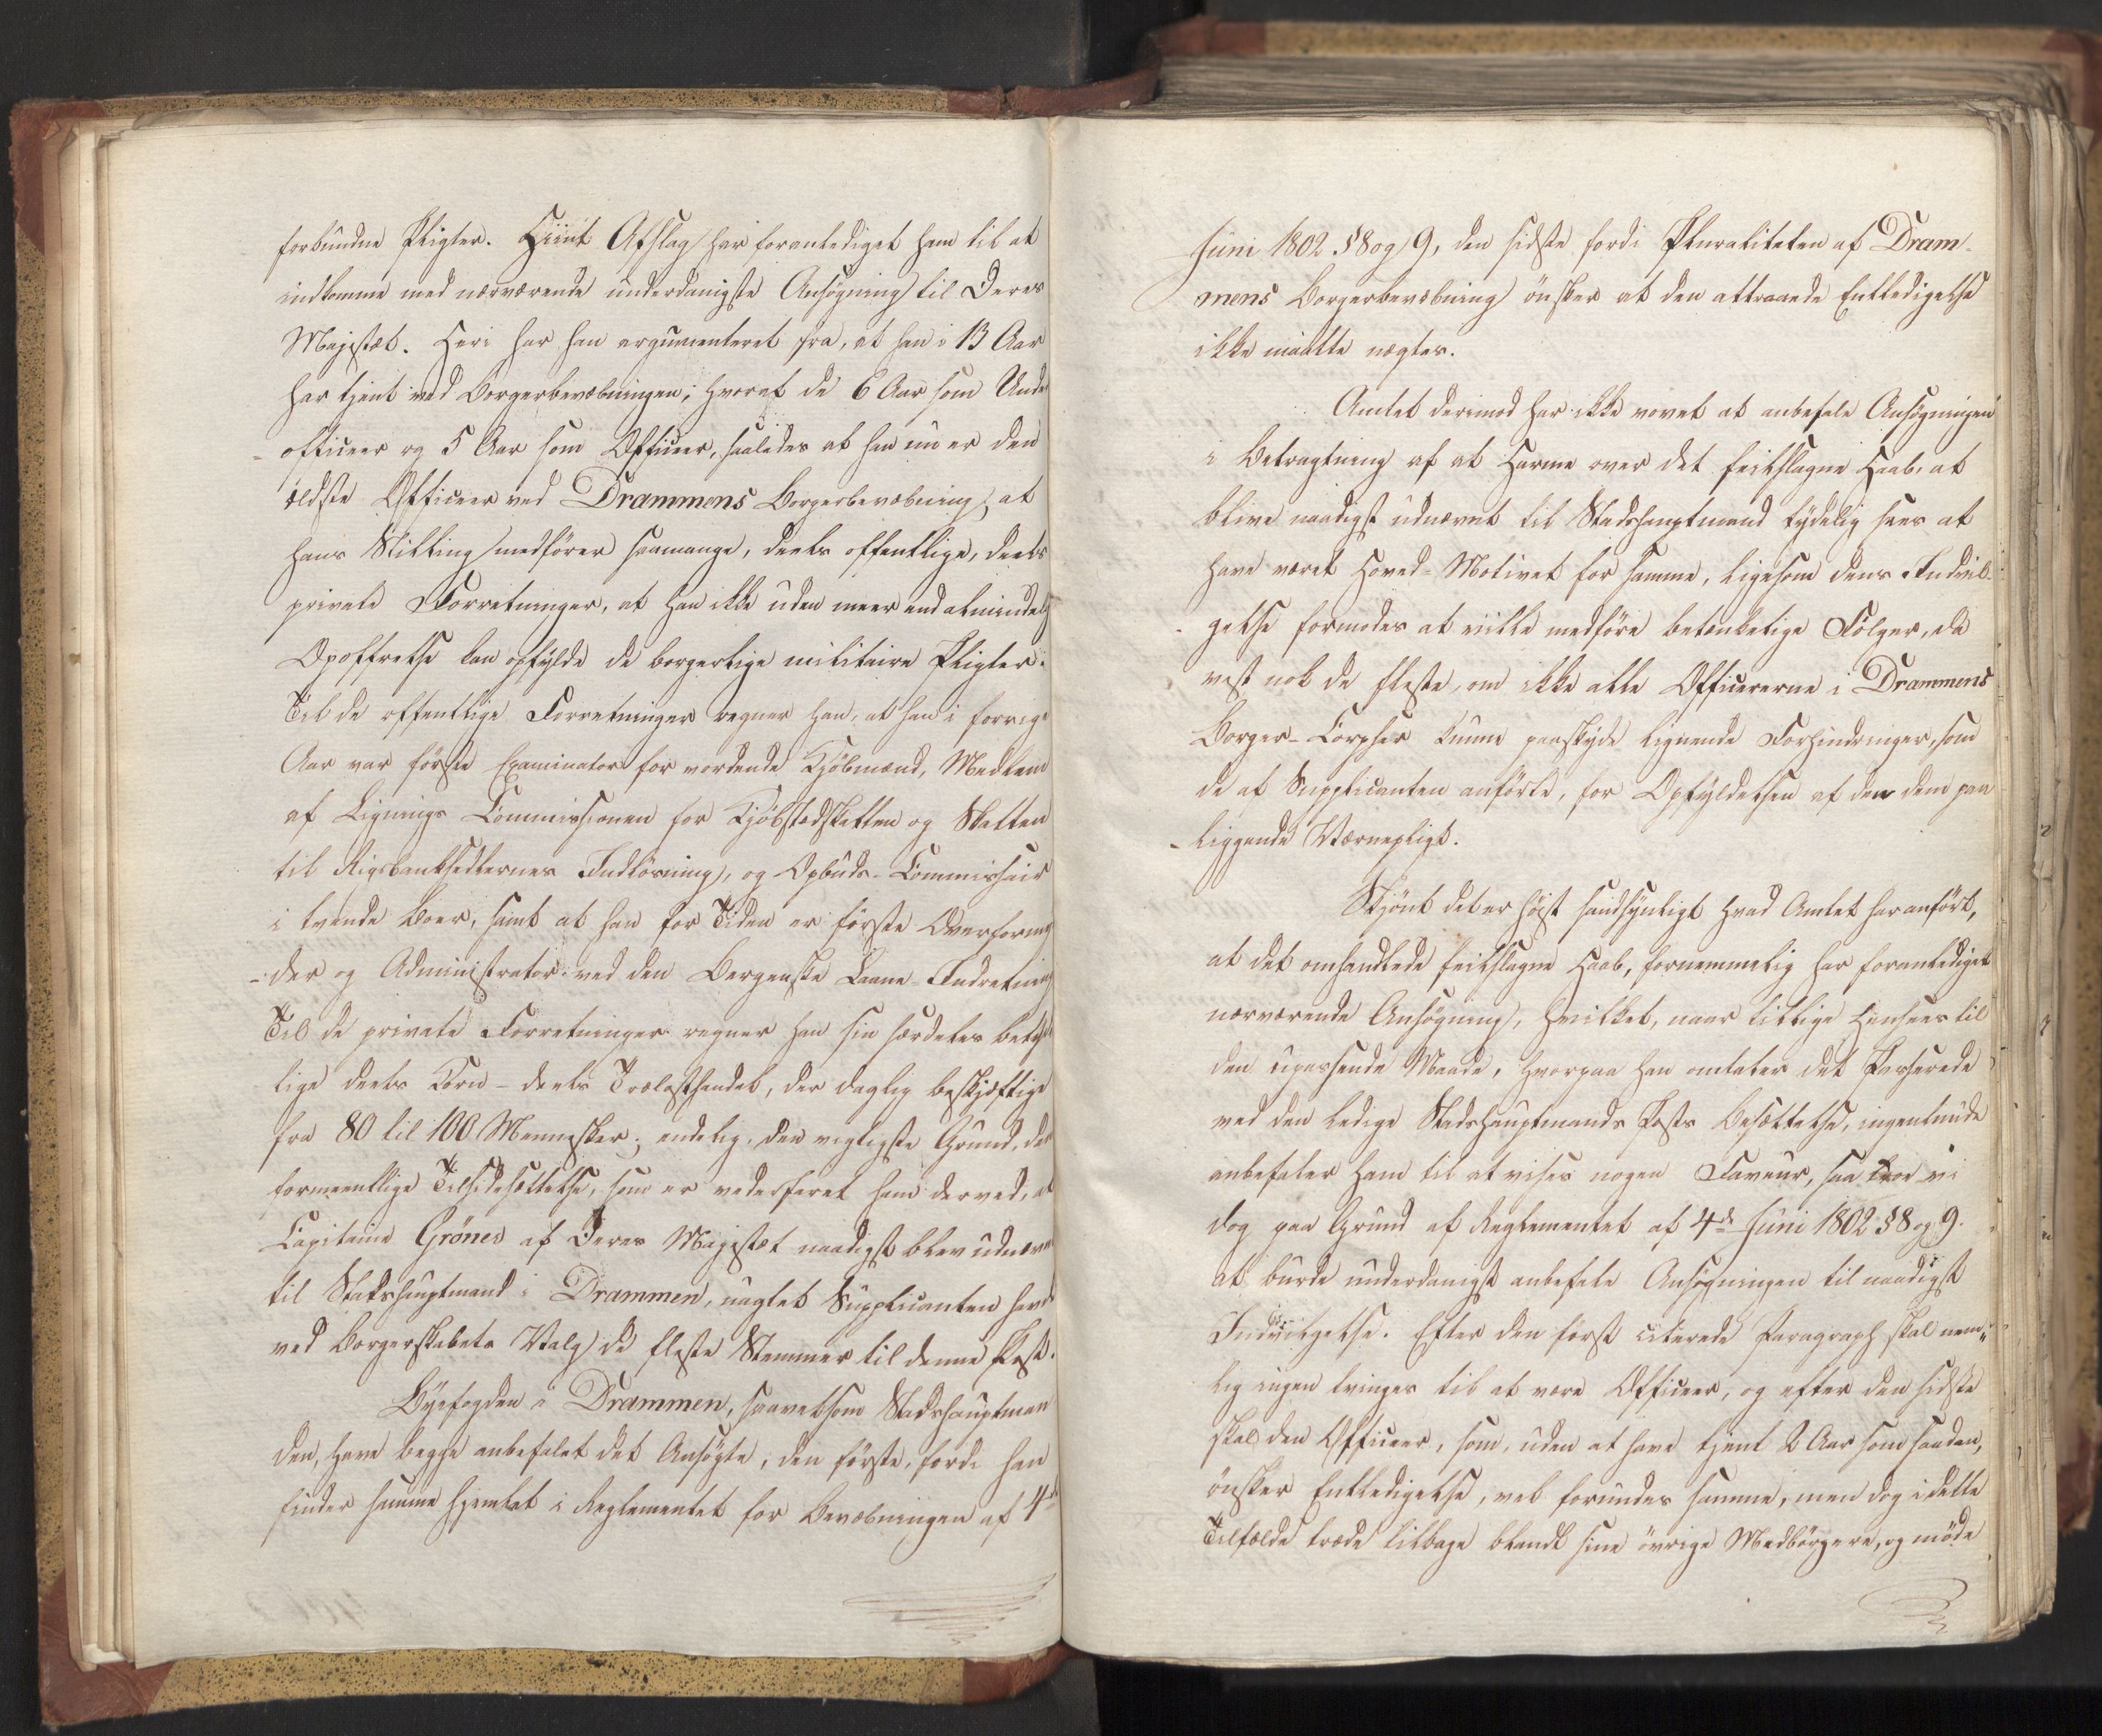 forbundne Pligter. Hiint Afslag har foranlediget ham til at
indkomme med nærværende underdanigste Ansøgning til Deres
Majestæt. Heri har han argumenteret fra, at han i 13 Aar
har tjent ved Borgerbevæbningen, hvoraf de 6 Aar som Under
-officeer og 5 Aar som Officeer, saaledes at han nu er den
ældste Officeer ved Drammens Borgerbevæbning, at
hans Stilling medfører saamange, deels offentlige, deels
private Forretninger, at han ikke uden meer end almindelig
Opoffrelse kan opfylde de borgerlige militaire Pligter.
Til de offentlige Forretninger regner han, at han i forrige
Aar var første Examinator for vordende Kjøbmænd, Medlem
af Lignings Commissionen for Kjøbstedskatten og Skatten
til Rigsbanksedlernes Indløsning, og Opbuds-Commissair
i tvende Boer, samt at han for Tiden er første Overformyn
-der og Administrator ved den Bergenske Laane-Indretning
Til de private Forretninger regner han sin særdeles betyde
lige deels Korn- deels Trælasthandel, der daglig beskjæftige
fra 80 til 100 Mennesker; endelig, den vigtigste Grund, den
formeentlige Tilsidesættelse, som er vederfaret ham derved, at
Capitaine Grönes af Deres Majestæt naadigst blev udnævnt
til Stadshauptmand i Drammen, uagtet Supplicanten havde
ved Borgerskabets Valg de fleste Stemmer til denne Post.
Byefogden i Drammen, saavelsom Stadshauptman
den, have begge anbefalet det Ansøgte, den første, fordi han
finder samme hjemlet i Reglementet for Bevæbningen af 4de
Juni 1802 §8 og 9, den sidste fordi Pluraliteten af Dram-
mens Borgerbevæbning ønsker at den attraaede Entledigelse
ikke maatte nægtes.
Amtet derimod har ikke vovet at anbefale Ansøgningen
i Betragtning af at Harme over det feilslagne Haab, at
blive naadigst udnævnt til Stadshauptmand tydelig sees at
have været Hoved-Motivet for samme, ligesom dens Indvil-
-gelse formodes at ville medføre betænkelige Følger, da
vist nok de fleste, om ikke alle Officererne i Drammens
Borger-Corpser kunne paaskyde lignende Forhindringer, som
de af Supplicanten anførte, for Opfyldelsen af den dem paa
-liggende Værnepligt.
Skjønt det er høist sandsynligt hvad Amtet har anført,
at det omhandlede feilslagne Haab, fornemmelig har foranlediget
nærværende Ansøgning, hvilket, naar tillige Hensees til
den upassende Maade, hvorpaa han omtaler det Passerede
ved den ledige Stadshauptmands Posts Besættelse, ingenlunde
anbefaler ham til at vises nogen Faveur, saa troe vi
dog paa Grund af Reglementet af 4de Juni 1802 §8 og 9.
at burde underdanigst anbefale Ansøgningen til naadigst
Indvilgelse. Efter den først citerede Paragraph skal nem-
lig ingen tvinges til at være Officeer, og efter den sidste
skal den Officeer, som, uden at have tjent 2 Aar som saadan,
ønsker Entledigelse, vel forundes samme, men dog i dette
Tilfælde træde tilbage blandt sine øvrige Medborgere, og møde